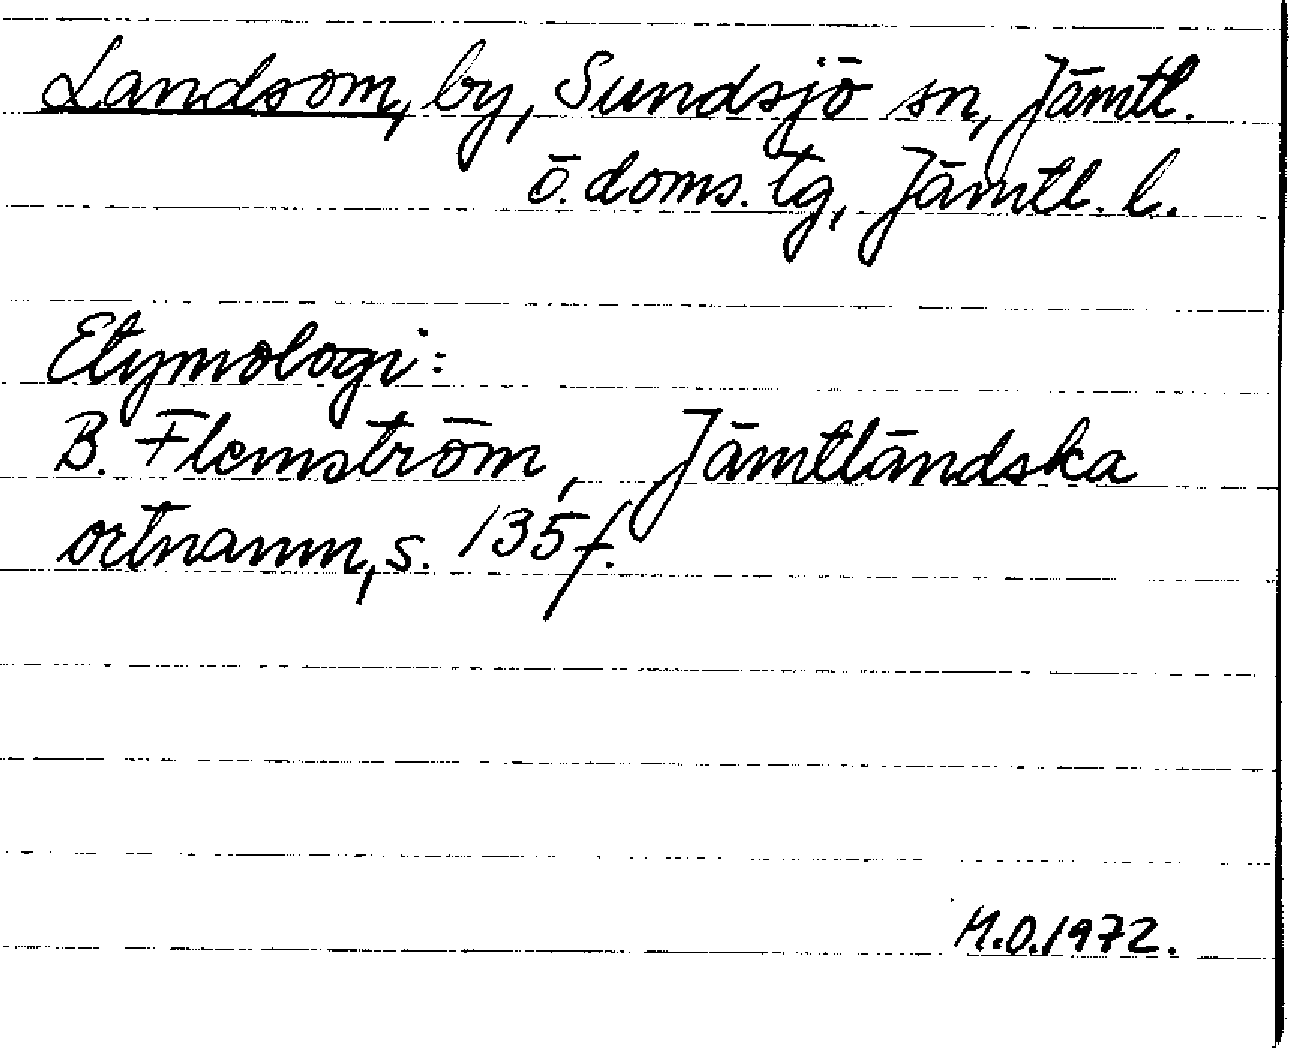 Landsom, by, Sundsjö sn, Jämtl.
ö. doms. tg, Jämtl. l.
Etymologi:
B. Flemström, Jämtländska
ortnamn, s. 135 f.
M.O. 1972.